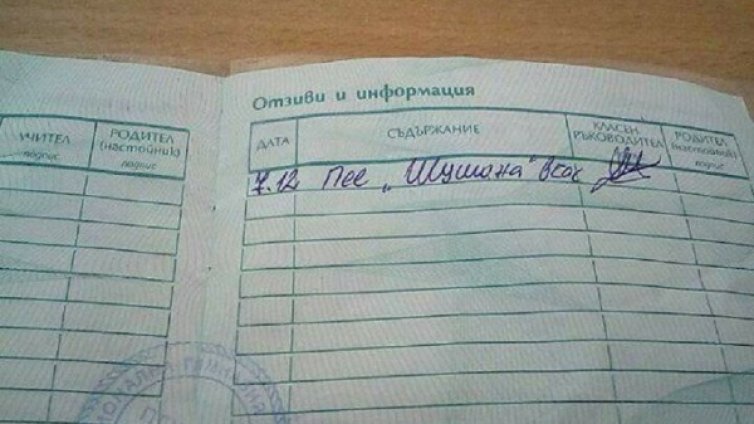 Отзиви и информация
УЧИТЕЛ
подпис
РОДИТЕЛ
(настойник)
подпис
ДАТА
СЪДЪРЖАНИЕ
КЛАСЕН
РЪКОВОДИТЕЛ
РОДИТЕЛ
(настойник)
подпис
7.12 Пее „Шушана"